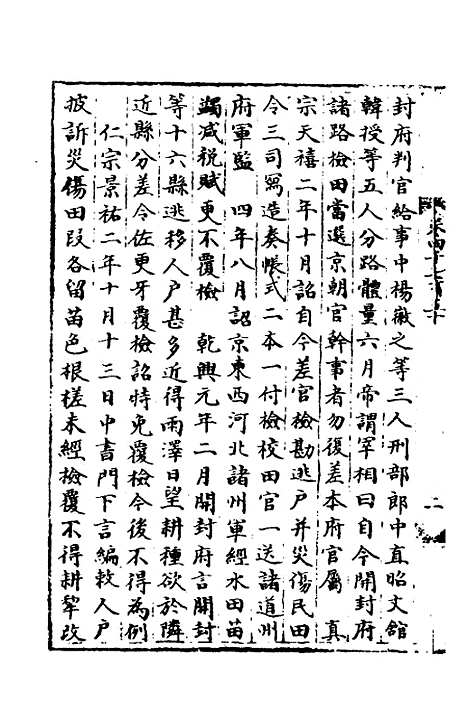 封府判官給事中楊徽之等三人刑部郎中直昭文舘
韓授等五人分路體量六月帝謂宰相曰自今開封府
諸路檢田當選京朝官幹事者勿復差本府官屬　真
宗天禧二年十月詔自今差官檢勘逃戶并災傷民田
令三司寫造奏帳式二本一付檢校田官一送諸道州
府軍監　四年八月詔京東西河北諸州軍經水田苗
蠲减稅賦更不覆檢　乾興元年二月開封府言開封
等十六縣逃移人戶甚多近得雨澤日望耕種欲於隣
近縣分差令佐更牙覆檢詔特免覆檢今後不得為例
仁宗景祐二年十月十三日中書門下言編敕人戶
披訴災傷田段各留苗色根槎未經檢覆不得耕犂改
二